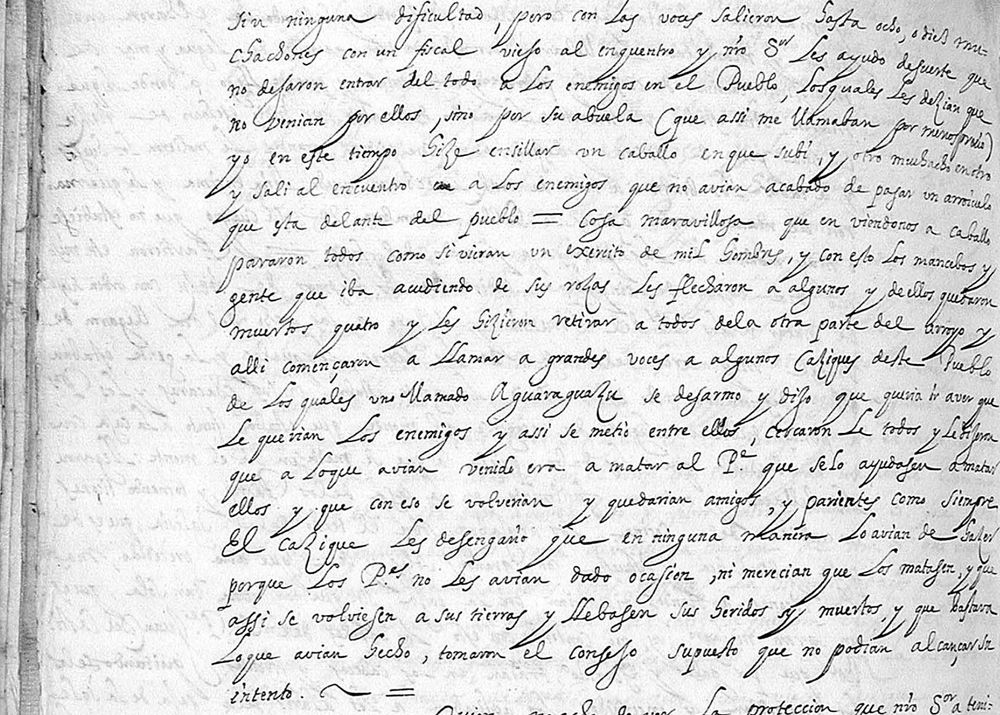 sin ninguna dificultad, pero con las voces salieron hasta ocho, o diez mu-
chachones con un fiscal viejo al enquentro y nrō Sor les ayudo de suerte que
no dejaron entrar del todo a los enemigos en el Pueblo, los quales les dezian que
no venian por ellos, sino por su abuela (que assi me llamaban por menosprecio)
yo en este tiempo hize ensillar un caballo en que subi, y otro muchacho en otro
y sali al encuentro a los enemigos que no avian acabado de pasar un arroiuelo
que esta delante del pueblo = Cosa maravillosa que en viendonos a caballo
pararon todos como si vieran un exercito de mil hombres, y con esto los mancebos y
gente que iba acudiendo de sus rozas les flecharon a algunos y de ellos quedaron
muertos quatro y les hizieron retirar a todos dela otra parte del arroyo y
alli començaron a llamar a grandes voces a algunos Caziques deste Pueblo
de los quales uno llamado Aguaraguazu se desarmo y dijo que queria ir a ver que
le querian los enemigos y assi se metio entre ellos, cercaron le todos y le dijeron
que a loque avian venido era a matar al Pe. que selo ayudasen a matar
ellos y que con eso se volverian y quedarian amigos, y parientes como siempre
El Cazique les desengaño que en ninguna manera lo avian de hazer
porque los Pes. no les avian dado ocasion, ni merecian que los matasen, y que
assi se volviesen a sus tierras y llebasen sus heridos y muertos, y que bastava
loque avian hecho, tomaron el consejo supuesto que no podian alcançar su
intento. =
la proteccion que nrō Sor a teni-